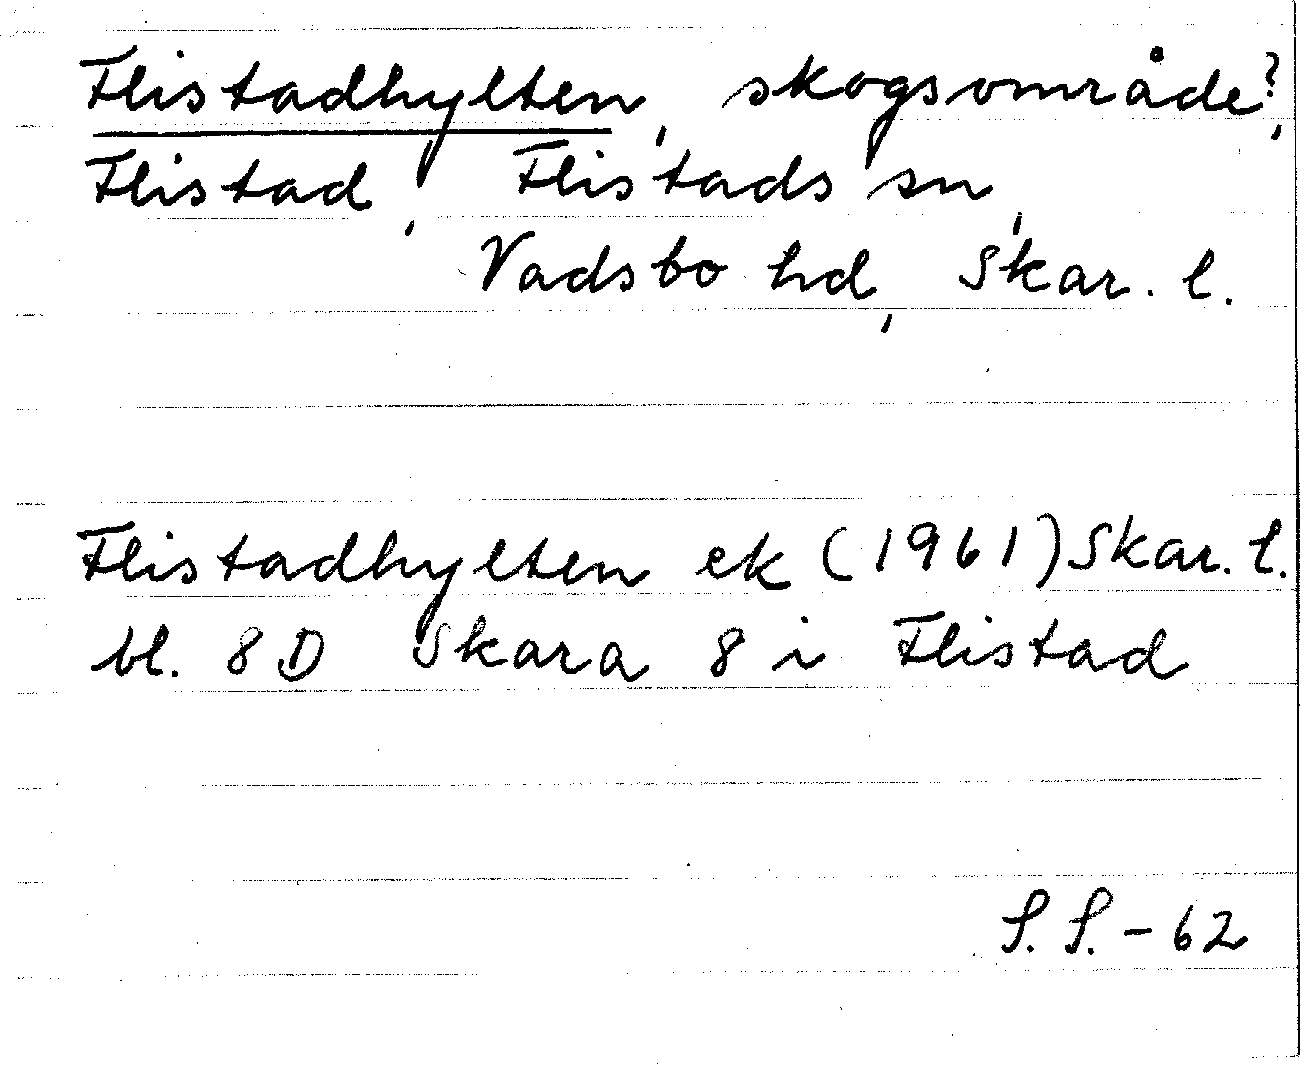 Flistadhylten, skogsområde?,
Flistad, Flistads sn,
Vadsbo hd, Skar. l.
Flistadhylten ek (1961) Skar. l.
bl. 8 D Skara 8 i Flistad
S. S. - 62